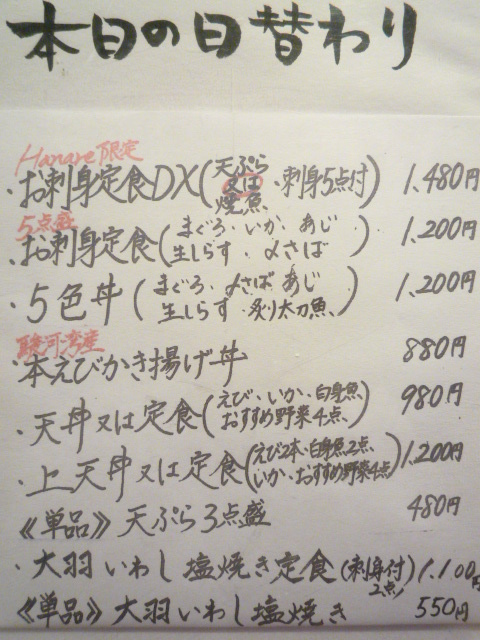 本日の日替わり
Hanare限定
・お刺身定食DX(天ぷら又は焼魚・刺身5点付) 1,480円
5点盛
・お刺身定食(まぐろ、いか、あじ 生しらす、〆さば) 1,200円
・5色丼(まぐろ、〆さば、あじ 生しらす、炙り太刀魚) 1,200円
駿河湾産
・本えびかき揚げ丼 880円
・天丼又は定食(えび、いか、白身魚 おすすめ野菜4点) 980円
・上天丼又は定食(えび2本、白身魚2点 いか、おすすめ野菜4点) 1,200円
《単品》天ぷら3点盛 480円
・大羽いわし塩焼き定食(刺身付2点) 1,100円
《単品》大羽いわし塩焼き 550円